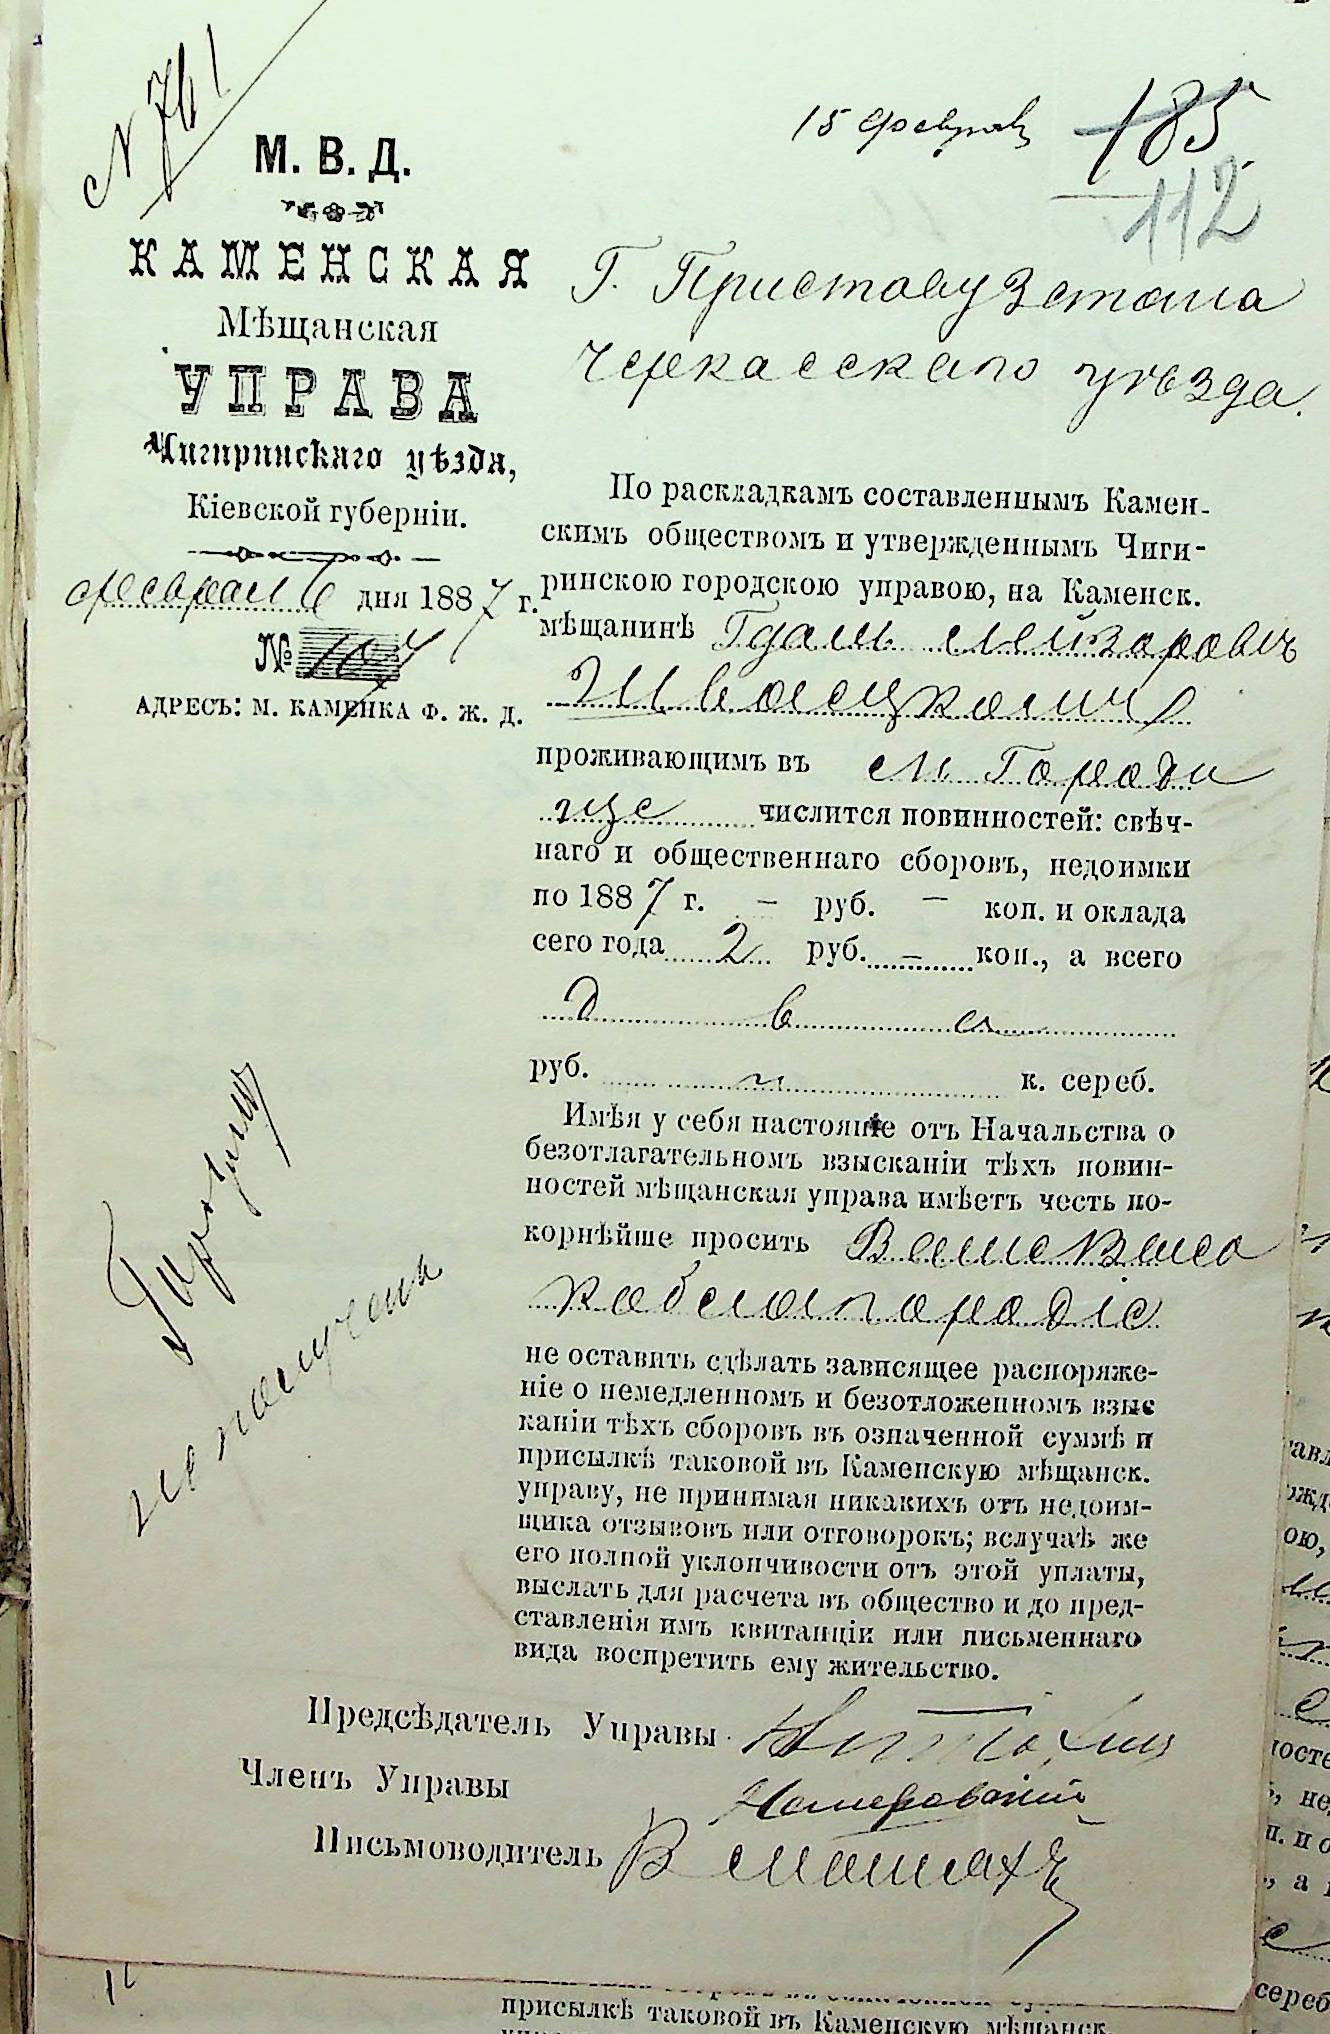 № 761
15 февраля
185
112
М. В. Д.
КАМЕНСКАЯ
Мѣщанская
УПРАВА
Чигиринскаго уѣзда,
Кіевской губерніи.
февраля 6 дня 1887 г.
№ 107
АДРЕСЪ: М. КАМЕНКА Ф. Ж. Д.
Г. Приставу 3 стана
Черкасскаго уѣзда.
По раскладкамъ составленнымъ Камен-
скимъ обществомъ и утвержденнымъ Чиги-
ринскою городскою управою, на Каменск.
мѣщанинѣ Гдаль Лейзоровъ
проживающимъ въ м. Городи
ще числится повинностей: свѣч-
наго и общественнаго сборовъ, недоимки
по 1887 г. – руб. – коп. и оклада
сего года 2 руб. – коп., а всего
два
руб. к. сереб.
Имѣя у себя настояніе отъ Начальства о
безотлагательномъ взысканіи тѣхъ повин-
ностей мѣщанская управа имѣетъ честь по-
корнѣйше просить Ваше Высо
коблагородіе
не оставить сдѣлать зависящее распоряже-
ніе о немедленномъ и безотложенномъ взыс
каніи тѣхъ сборовъ въ означенной суммѣ и
присылкѣ таковой въ Каменскую мѣщанск.
управу, не принимая никакихъ отъ недоим-
щика отзывовъ или отговорокъ; вслучаѣ же
его полной уклончивости отъ этой уплаты,
выслать для расчета въ общество и до пред-
ставленія имъ квитанціи или письменнаго
вида воспретить ему жительство.
не получены
Предсѣдатель Управы
Членъ Управы
Письмоводитель
присылкѣ таковой въ Каменскую мѣщанск.